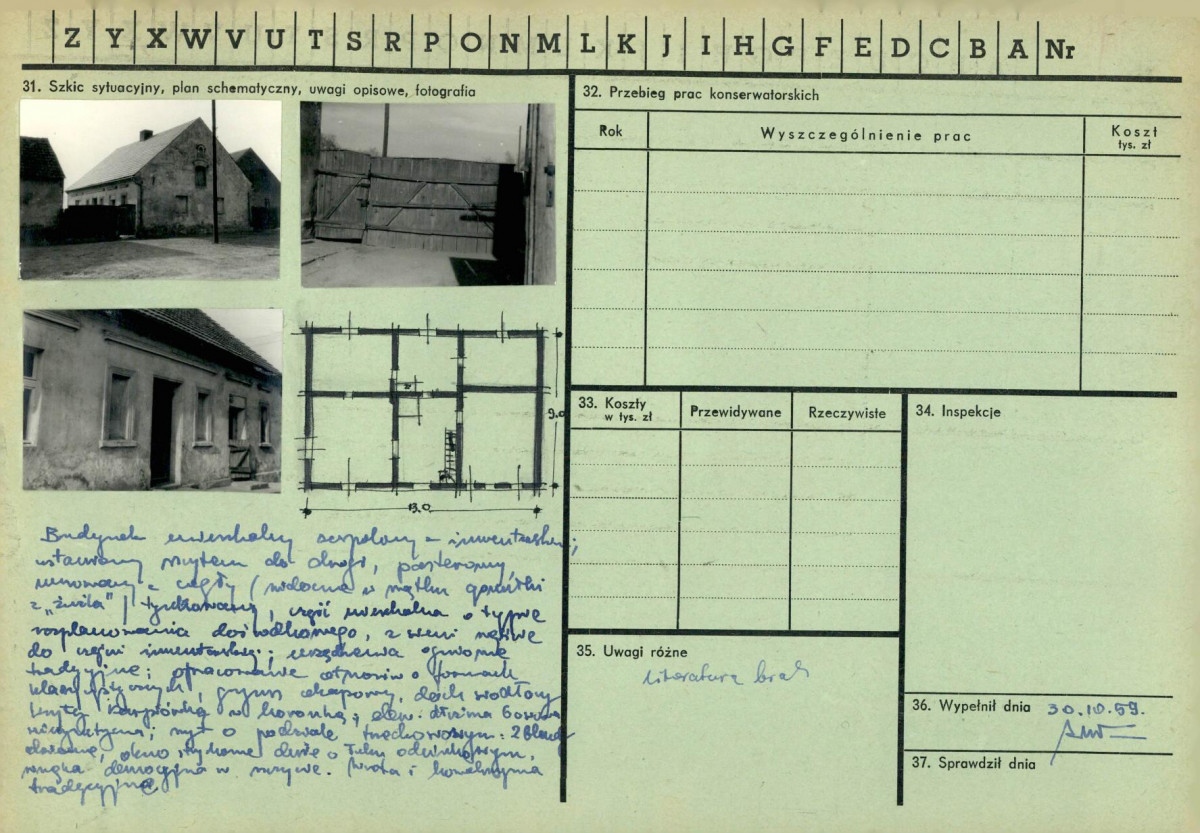 Z Y X W V U T S R P O N M L K J I H G F E D C B A Nr
31. Szkic sytuacyjny, plan schematyczny, uwagi opisowe, fotografia
9.0
13.0
Budynek mieszkalny zespolony z inwentarskim;
ustawiony szczytem do drogi, parterowy,
murowany z cegły (widoczne w
z „żużla”) tynkowany, część mieszkalna o typie
rozplanowania dośrodkowego, z sieni wejście
do części inwentarskiej; urządzenia ogniowe
tradycyjne; opracowanie otworów o formach
klasycystycznych, gzyms okapowy, dach siodłowy
kryty karpiówką w koronkę; elew. dłuższa 6 osiowa
niesymetryczna; szczyt o podziale
okno strychowe duże o łuku odcinkowym,
wnęka dewocyjna w szczycie. Wrota i konstrukcyjna
tradycyjne
32. Przebieg prac konserwatorskich
Rok
Wyszczególnienie prac
Koszt
tys. zł
33. Koszty
w tys. zł
Przewidywane
Rzeczywiste
34. Inspekcje
35. Uwagi różne
Literatura brak
36. Wypełnił dnia 30.10.59.
37. Sprawdził dnia